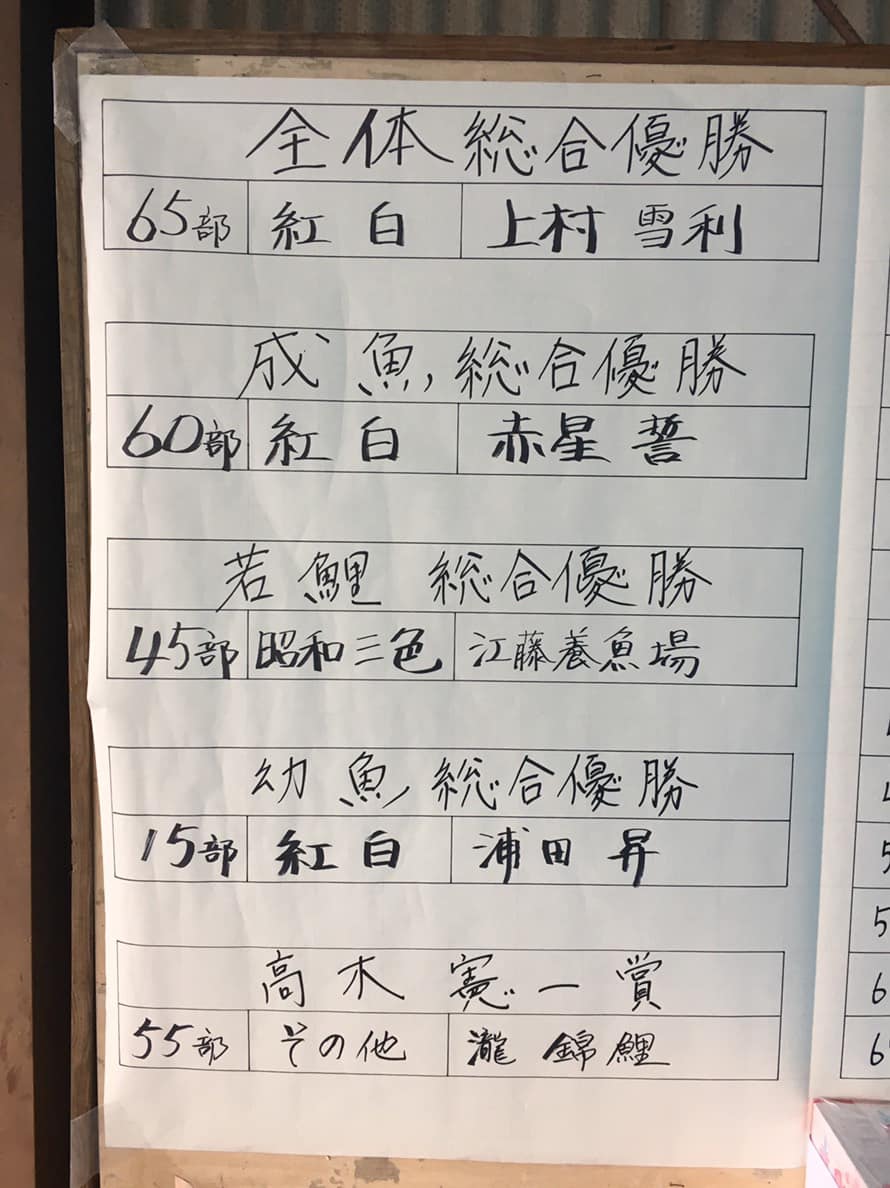 全体総合優勝
65部 紅白 上村 雪利
成魚総合優勝
60部 紅白 赤星 誓
若鯉 総合優勝
45部 昭和三色 江藤養魚場
幼魚総合優勝
15部 紅白 浦田 昇
高木 憲一賞
55部 その他 瀧 錦鯉